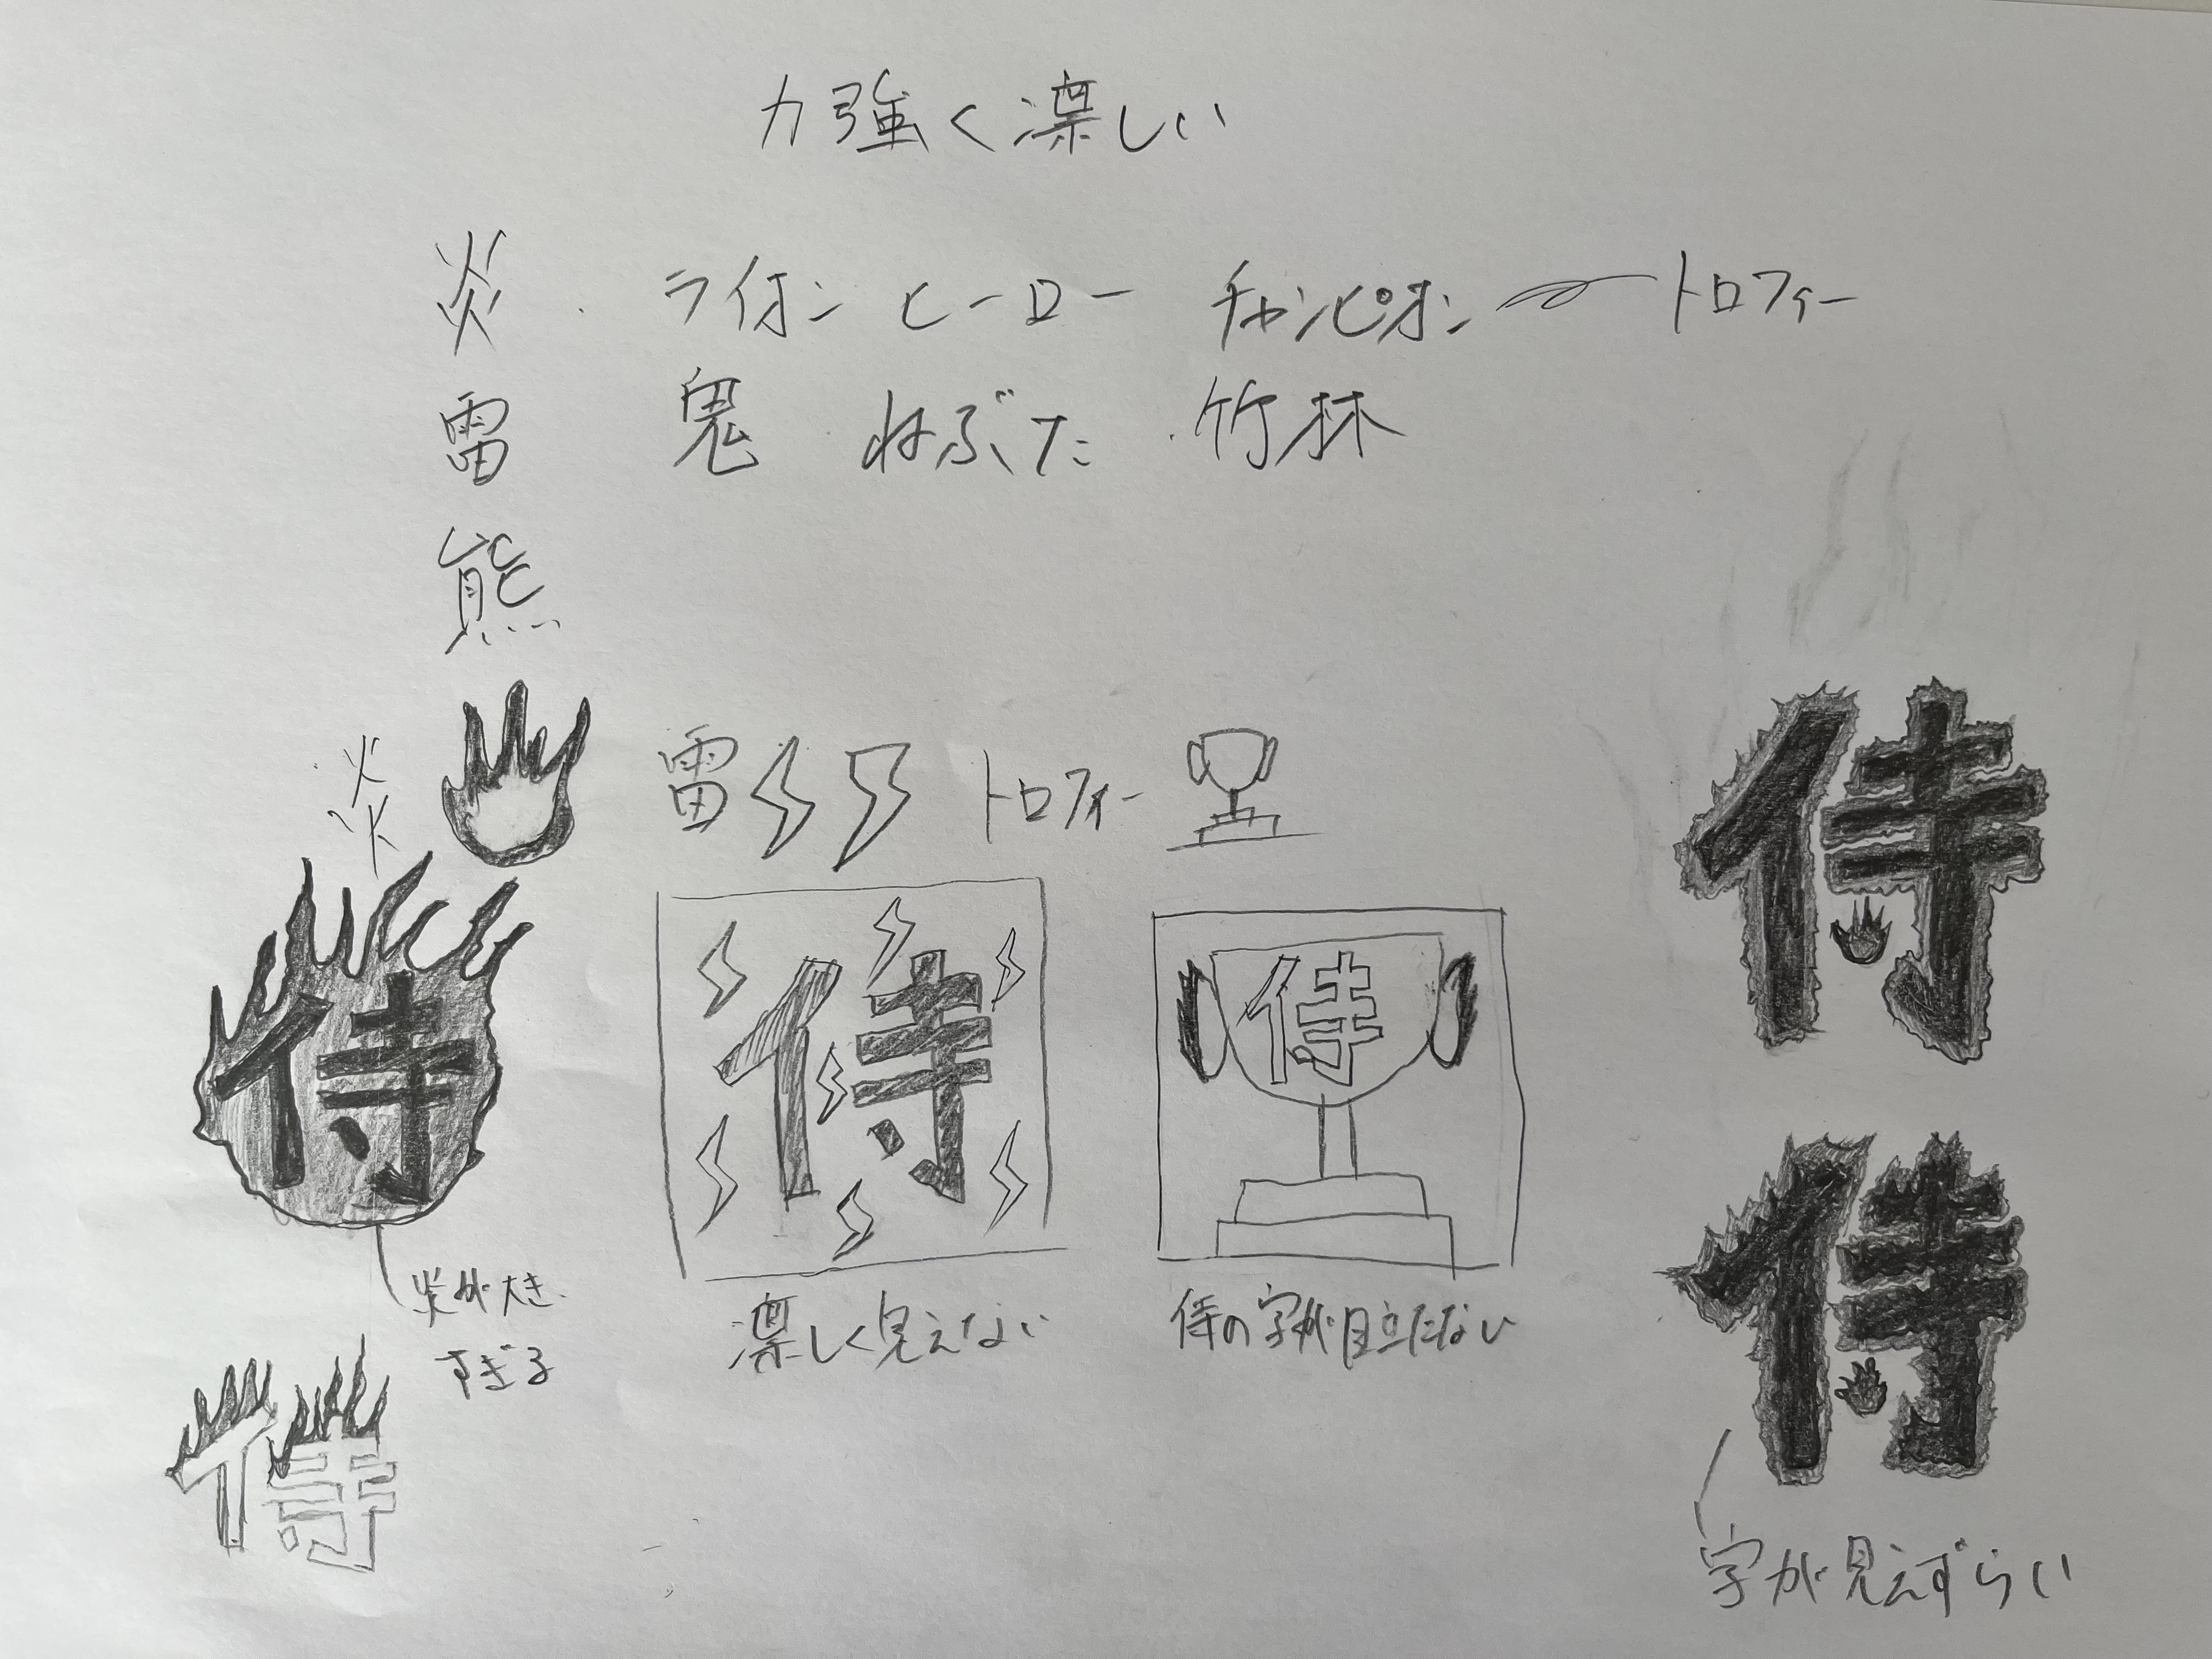 力強く凛しい
炎 ライオン ヒーロー チャンピオン トロフィー
雷 鬼 ねぶた 竹林
熊
炎 雷 トロフィー
侍
侍
侍
侍
炎が大き
すぎる
凛しく見えない
侍の字が目立たない
侍
侍
字が見えずらい